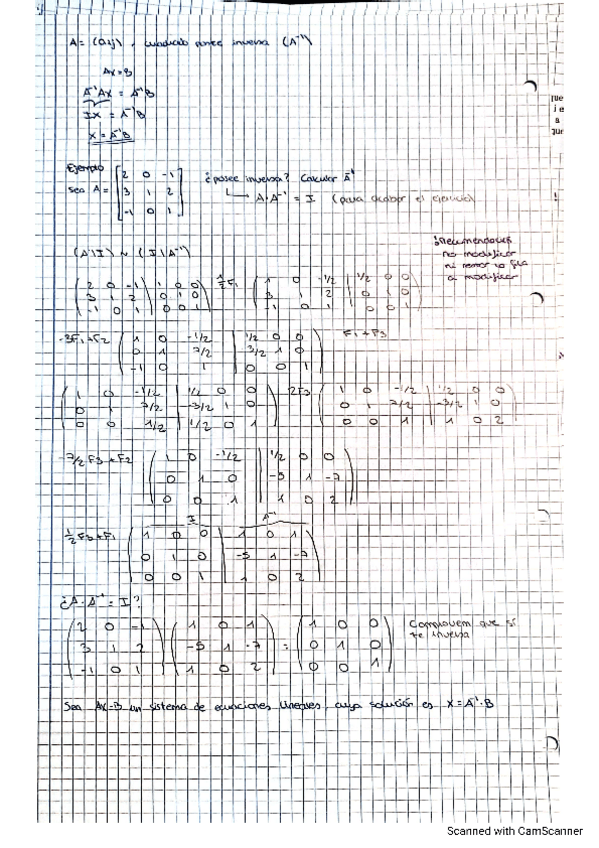 A = (aij), cuadrada posee inversa (A⁻¹)
AX = B
A⁻¹AX = A⁻¹B
IX = A⁻¹B
X = A⁻¹B
Ejemplo
sea A = [2 0 -1
3 1 2
-1 0 1]
¿posee inversa? Calcular A⁻¹
A·A⁻¹ = I (para acabar el ejercicio)
(A|I) ~ (I|A⁻¹)
no modificar
a modificar
(2 0 -1 | 1 0 0
3 1 2 | 0 1 0
-1 0 1 | 0 0 1)
½F₁
(1 0 -1/2 | 1/2 0 0
3 1 2 | 0 1 0
-1 0 1 | 0 0 1)
-3F₁+F₂
(1 0 -1/2 | 1/2 0 0
0 1 7/2 | 3/2 1 0
-1 0 1 | 0 0 1)
F₁+F₃
(1 0 -1/2 | 1/2 0 0
0 1 7/2 | -3/2 1 0
0 0 1/2 | 1/2 0 1)
2F₃
(1 0 -1/2 | 1/2 0 0
0 1 7/2 | -3/2 1 0
0 0 1 | 1 0 2)
-7/2 F₃+F₂
(1 0 -1/2 | 1/2 0 0
0 1 0 | -5 1 -7
0 0 1 | 1 0 2)
I A⁻¹
½F₃+F₁
(1 0 0 | 1 0 1
0 1 0 | -5 1 -7
0 0 1 | 1 0 2)
¿A·A⁻¹ = I?
(2 0 -1
3 1 2
-1 0 1)
(1 0 1
-5 1 -7
1 0 2)
=
(1 0 0
0 1 0
0 0 1)
Comprovem que sí
te inversa
Sea AX=B un sistema de ecuaciones lineales, cuya solución es X = A⁻¹·B
Scanned with CamScanner